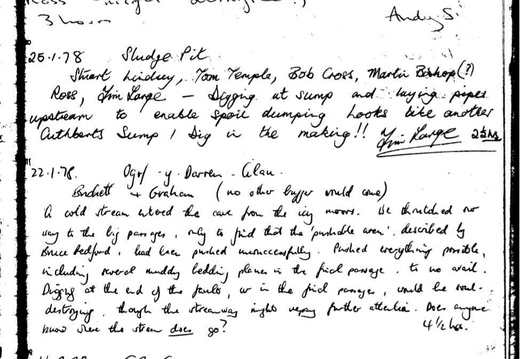 3 hours
Andy S.
25.1.78 Sludge Pit
Stuart Lindsey, Tom Temple, Bob Cross, Martin Bishop (?)
Ross, Tim Large — Digging at sump and laying pipes
upstream to enable spoil dumping. Looks like another
Cuthberts Sump 1 Dig in the making!! Tim Large 2½ hrs
22.1.78. Ogof - y - Darren - Cilau.
Buckett + Graham (no other bugger would come)
A cold stream entered the cave from the icy moors. We thrutched our
way to the big passages, only to find that the 'pushable area', described by
Bruce Bedford, had been pushed unsuccessfully. Pushed everything possible,
including several muddy bedding planes in the final passage, to no avail.
Digging at the end of the faults, or in the final passage, would be soul-
destroying, though the streamway might repay further attention. Does anyone
know where the stream does go? 4½ hrs.